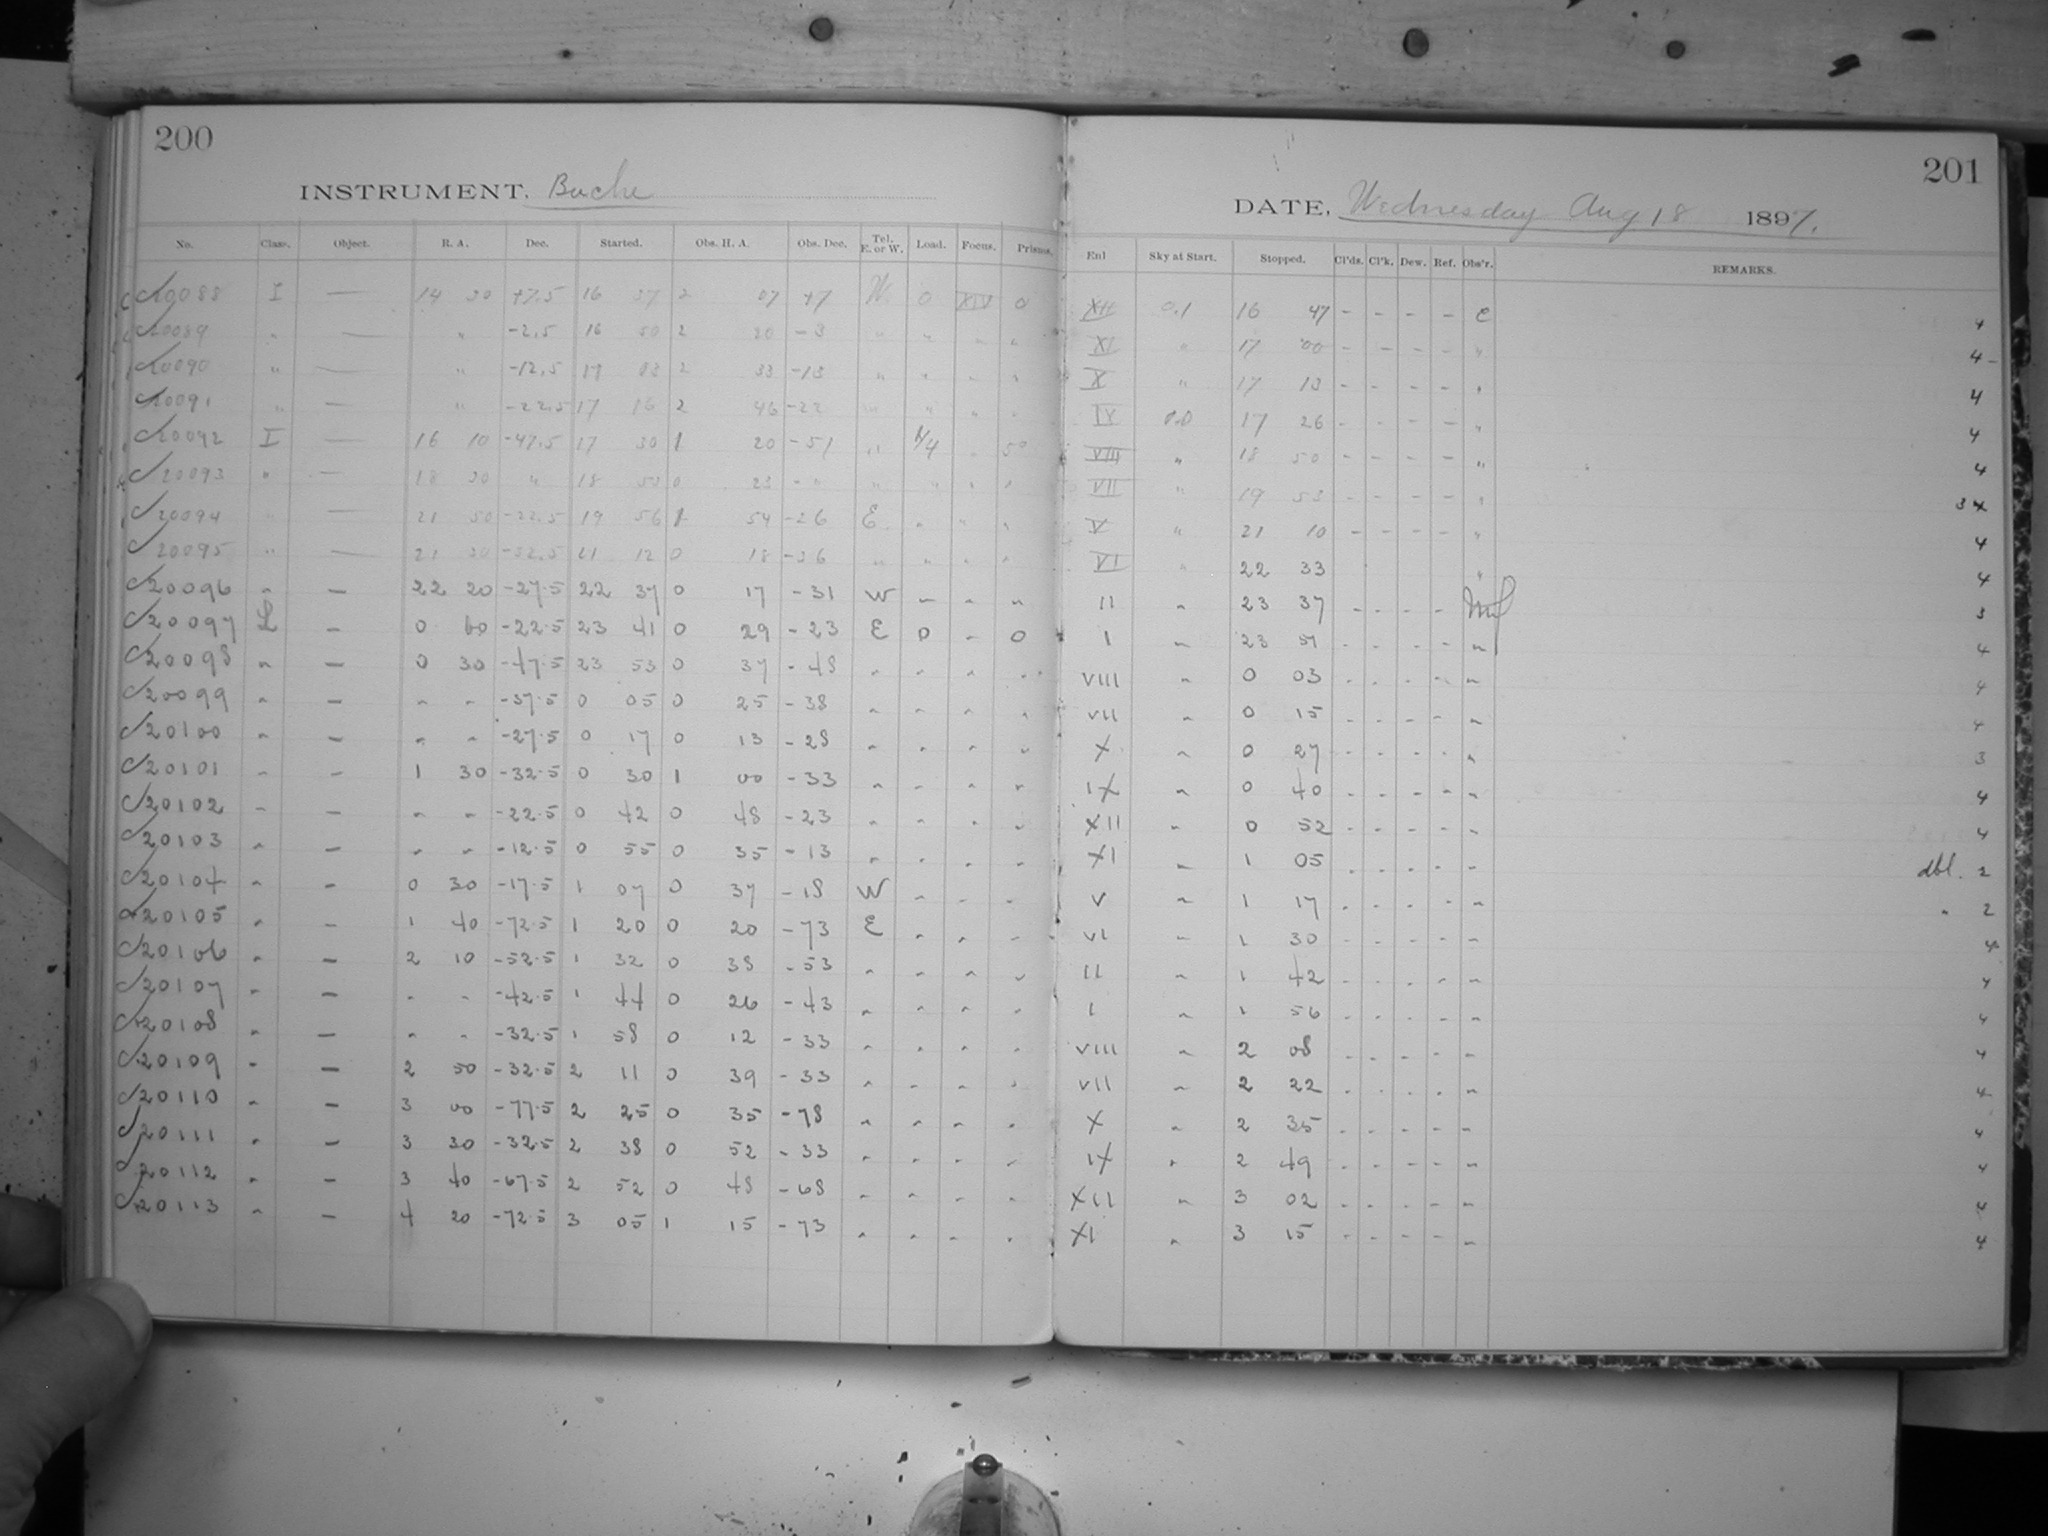 200
INSTRUMENT, Bache
No. Class. Object. R. A. Dec. Started. Obs. H. A. Obs. Dec. Tel. E. or W. Load. Focus. Prisms.
20088 I — 14 30 +7.5 16 37 2 07 +7 W 0 XIV 0
20089 " — " -2.5 16 50 2 20 -3 " " " "
20090 " — " -12.5 17 03 2 33 -13 " " " "
20091 " — " -22.5 17 16 2 46 -22 " " " "
20092 I — 16 10 -47.5 17 30 1 20 -51 " 1/4 " 50
20093 " — 18 30 " 18 53 0 23 - " " " " "
20094 " — 21 50 -22.5 19 56 1 54 -26 E " " "
20095 " — 21 30 -32.5 21 12 0 18 -36 " " " "
20096 " — 22 20 -27.5 22 37 0 17 -31 W " " "
20097 L — 0 00 -22.5 23 41 0 29 -23 E 0 " 0
20098 " — 0 30 -47.5 23 53 0 37 -48 " " " "
20099 " — " " -37.5 0 05 0 25 -38 " " " "
20100 " — " " -27.5 0 17 0 13 -28 " " " "
20101 " — 1 30 -32.5 0 30 1 00 -33 " " " "
20102 " — " " -22.5 0 42 0 48 -23 " " " "
20103 " — " " -12.5 0 55 0 35 -13 " " " "
20104 " — 0 30 -17.5 1 07 0 37 -18 W " " "
20105 " — 1 40 -72.5 1 20 0 20 -73 E " " "
20106 " — 2 10 -52.5 1 32 0 38 -53 " " " "
20107 " — " " -42.5 1 44 0 26 -43 " " " "
20108 " — " " -32.5 1 58 0 12 -33 " " " "
20109 " — 2 50 -32.5 2 11 0 39 -33 " " " "
20110 " — 3 00 -77.5 2 25 0 35 -78 " " " "
20111 " — 3 30 -32.5 2 38 0 52 -33 " " " "
20112 " — 3 40 -67.5 2 52 0 48 -68 " " " "
20113 " — 4 20 -72.5 3 05 1 15 -73 " " " "
201
DATE, Wednesday Aug 18 1897.
Enl Sky at Start. Stopped. Cl'ds. Cl'k. Dew. Ref. Obs'r. REMARKS.
XII 0.1 16 47 - - - - C 4
XI " 17 00 - - - - " 4
X " 17 13 - - - - " 4
IX 0.0 17 26 - - - - " 4
VIII " 18 50 - - - - " 4
VII " 19 53 - - - - " 3
V " 21 10 - - - - " 4
VI " 22 33 " 4
II " 23 37 - - - - 3
I " 23 51 - - - - " 4
VIII " 0 03 - - - - " 4
VII " 0 15 - - - - " 4
X " 0 27 - - - - " 3
IX " 0 40 - - - - " 4
XII " 0 52 - - - - " 4
XI " 1 05 - - - - " dbl. 2
V " 1 17 - - - - " " 2
VI " 1 30 - - - - " 4
II " 1 42 - - - - " 4
I " 1 56 - - - - " 4
VIII " 2 08 - - - - " 4
VII " 2 22 - - - - " 4
X " 2 35 - - - - " 4
IX " 2 49 - - - - " 4
XII " 3 02 - - - - " 4
XI " 3 15 - - - - " 4